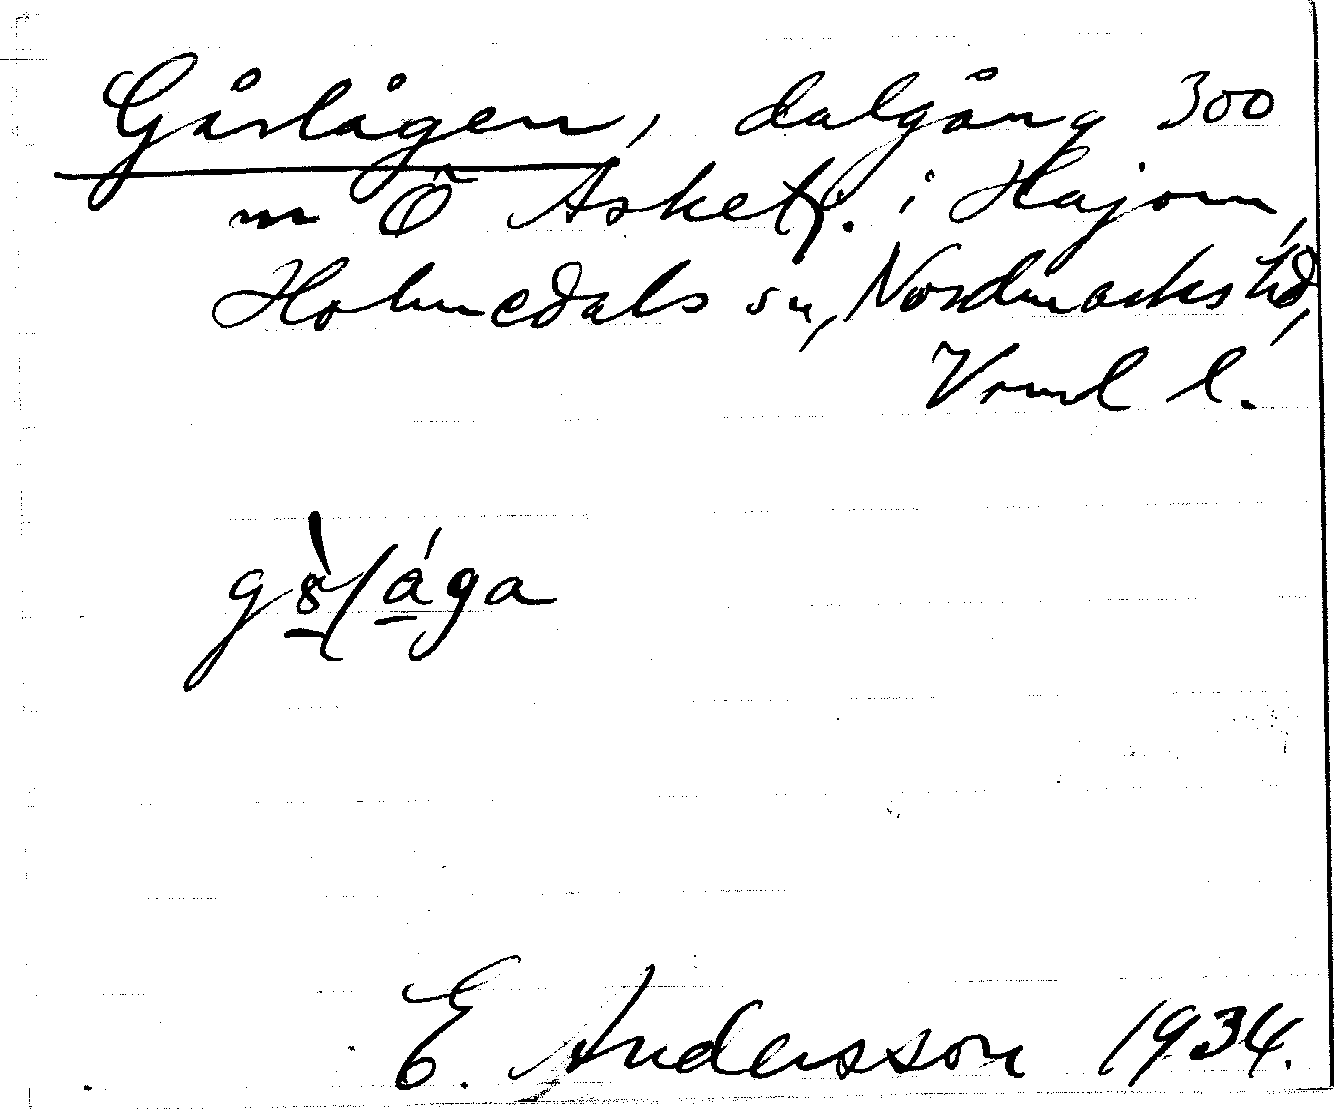 Gåslågen, dalgång 300
m Ö Asket f. i Håjom,
Holmedals sn, Nordmarks hd,
Vrml l.
E. Andersson 1934.